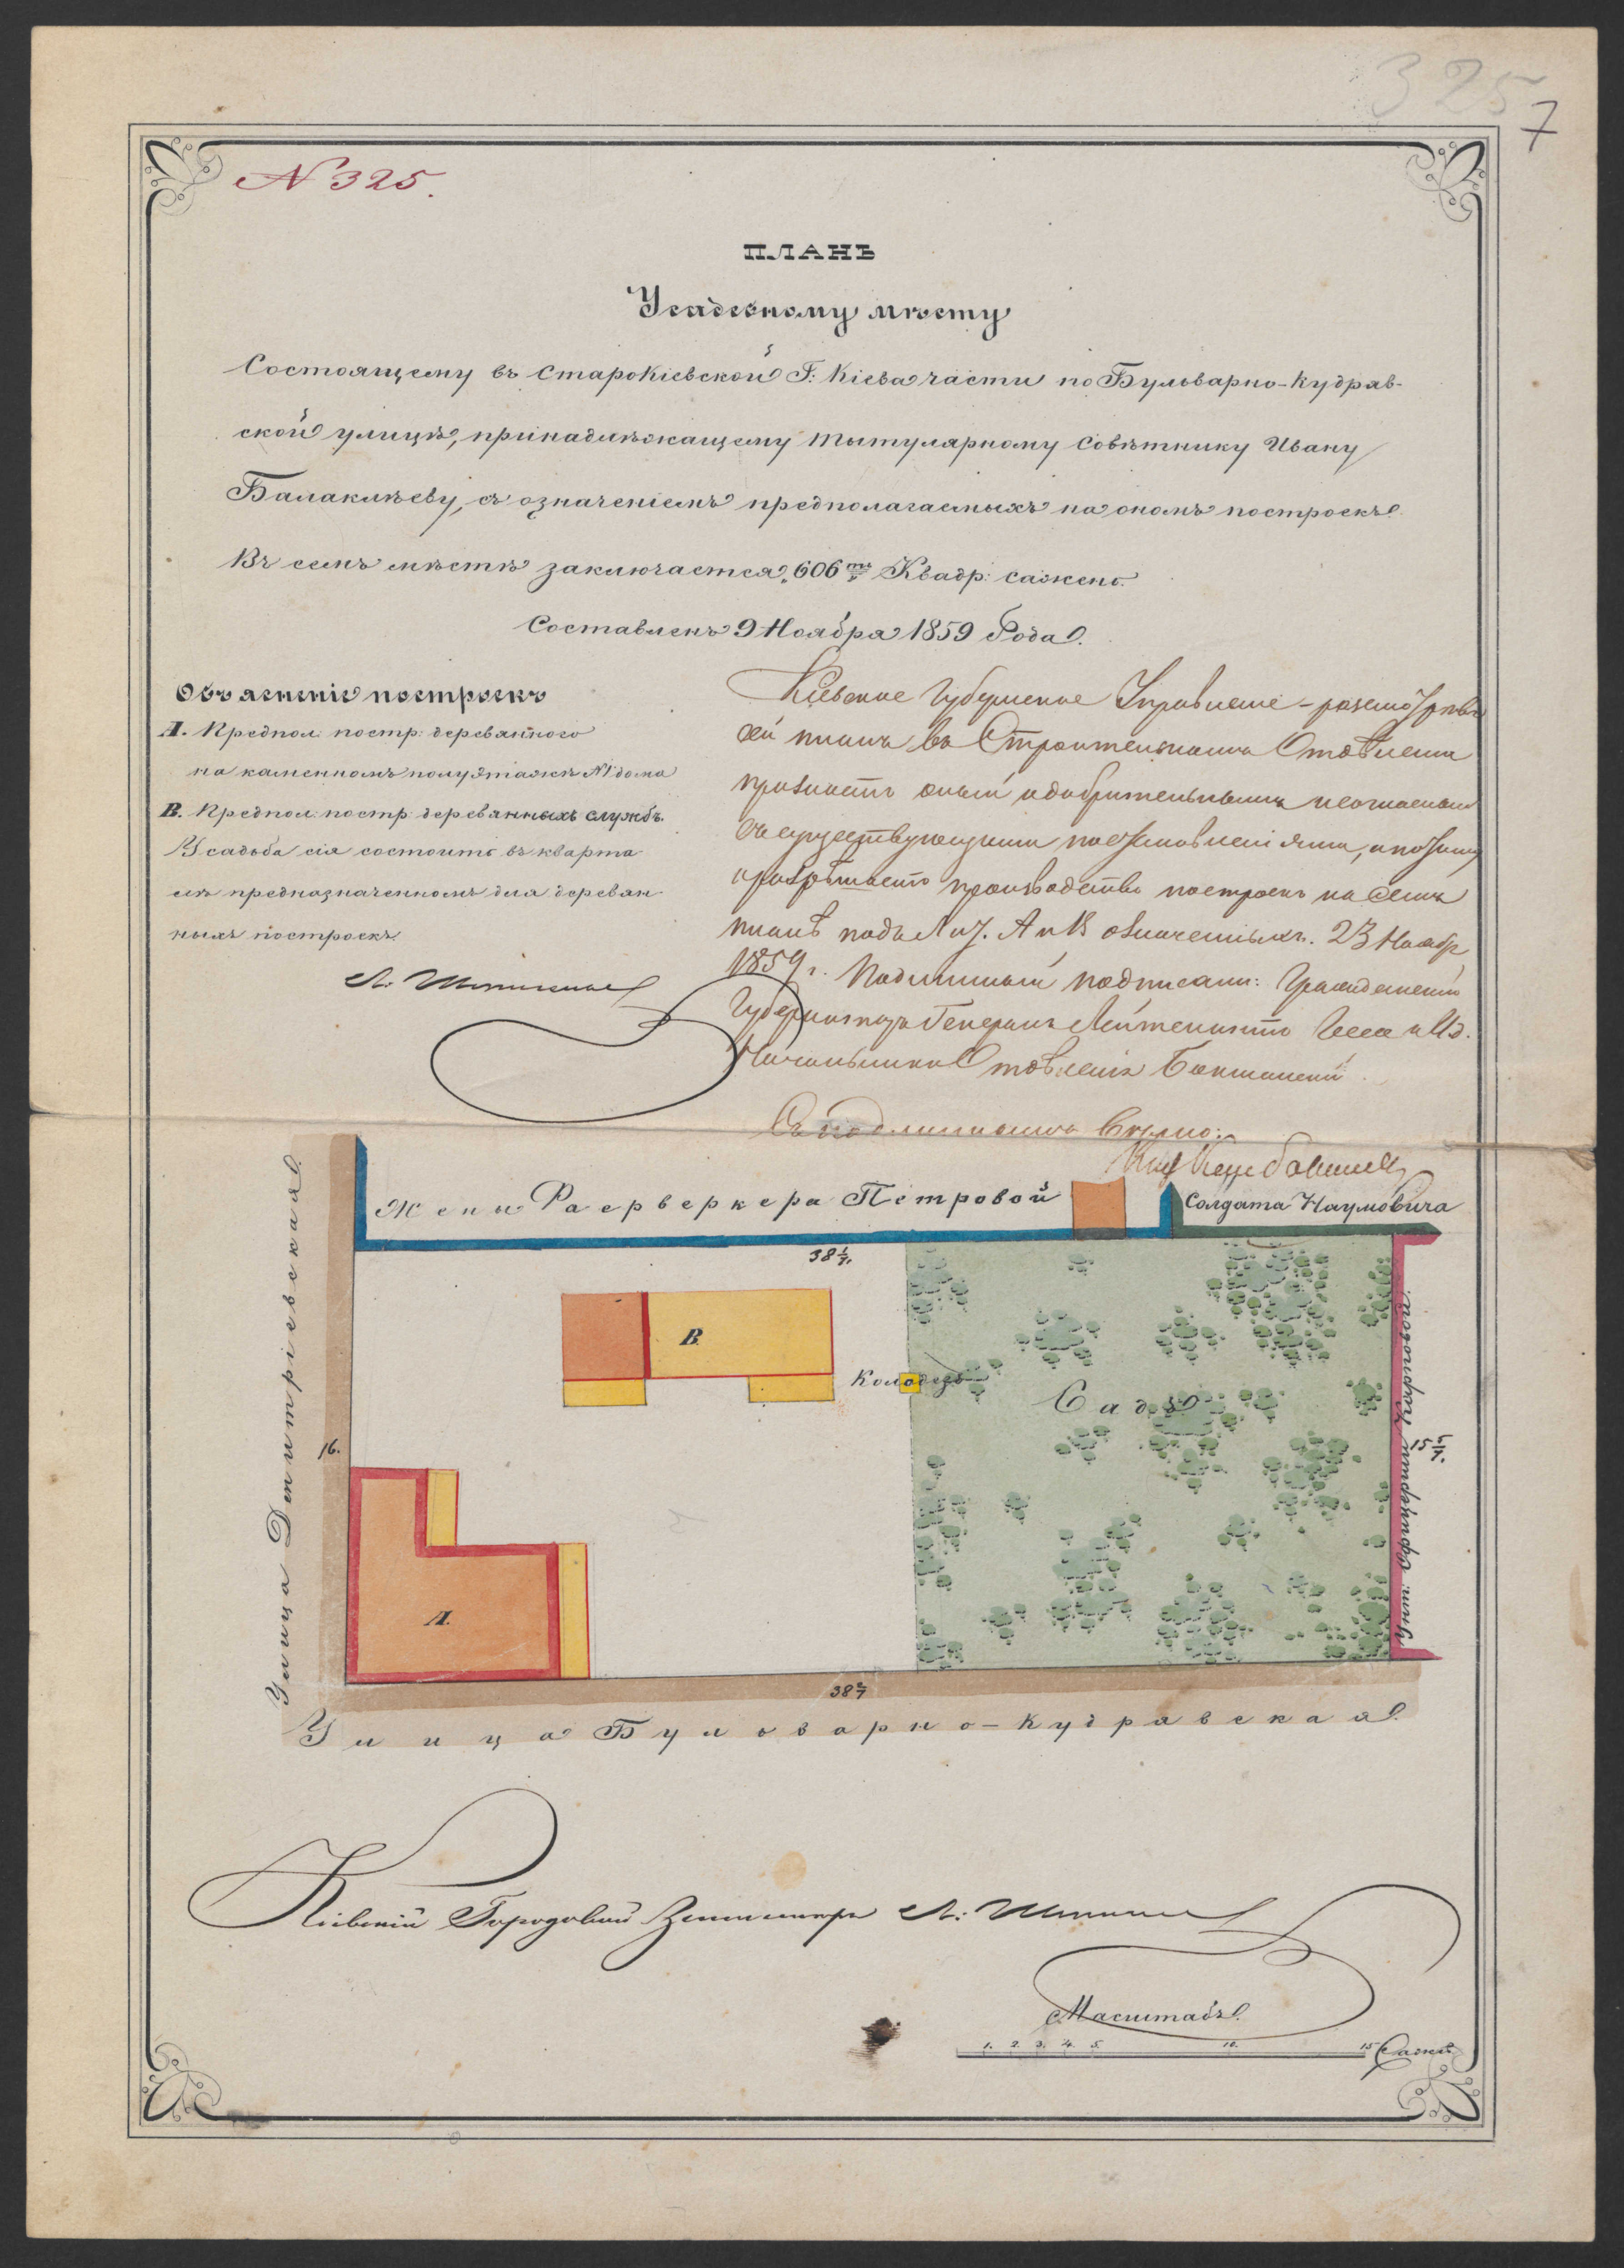 325
7
N 325.
ПЛАНЪ
Усадебному мѣсту
Состоящему въ Старокіевской Г: Кіева части по Бульварно-Кудряв-
ской улицѣ, принадлѣжащему Тытулярному Совѣтнику Ивану
Балаклѣеву, съ означеніемъ предполагаемыхъ на ономъ построекъ.
Въ семъ мѣстѣ заключается 606 Квадр: сажень.
Составленъ 9 Ноября 1859 Года.
Объясненіе построекъ
А. Предпол: постр: деревянного
на каменномъ полуэтажѣ №1 дома
В. Предпол: постр: деревянныхъ службъ.
Усадьба сія состоитъ въ кварта
лѣ предназначенномъ для деревян
ныхъ построекъ.
Кіевское Губернское Управленіе - разсмотрѣвъ
сей планъ въ Строительномъ Отдѣленіи
признаетъ оный одобрительнымъ и согласнымъ
съ существующими постановленіями, а потому
и разрѣшаетъ производство построекъ на семъ
планѣ подъ Лит. А и В означенныхъ. 23 Ноябр
1859 г. Подлинный подписали: Гражданскій
Губернаторъ Генералъ Лейтенантъ Гессе и Ид.
Начальника Отдѣленія
Съ подлиннымъ вѣрно:
Жены Фаерверкера Петровой
Солдата Наумовича
Улица Дмитріевская.
38 1/7.
В.
Колодезь
Садъ
16.
15 5/7.
Унт: Офицерши Карповой.
А.
38 2/7
Улица Бульварно-Кудрявская.
Кіевскій Городовый Землемѣръ Л:
Масштабъ.
1. 2. 3. 4. 5. 10. 15 Сажен